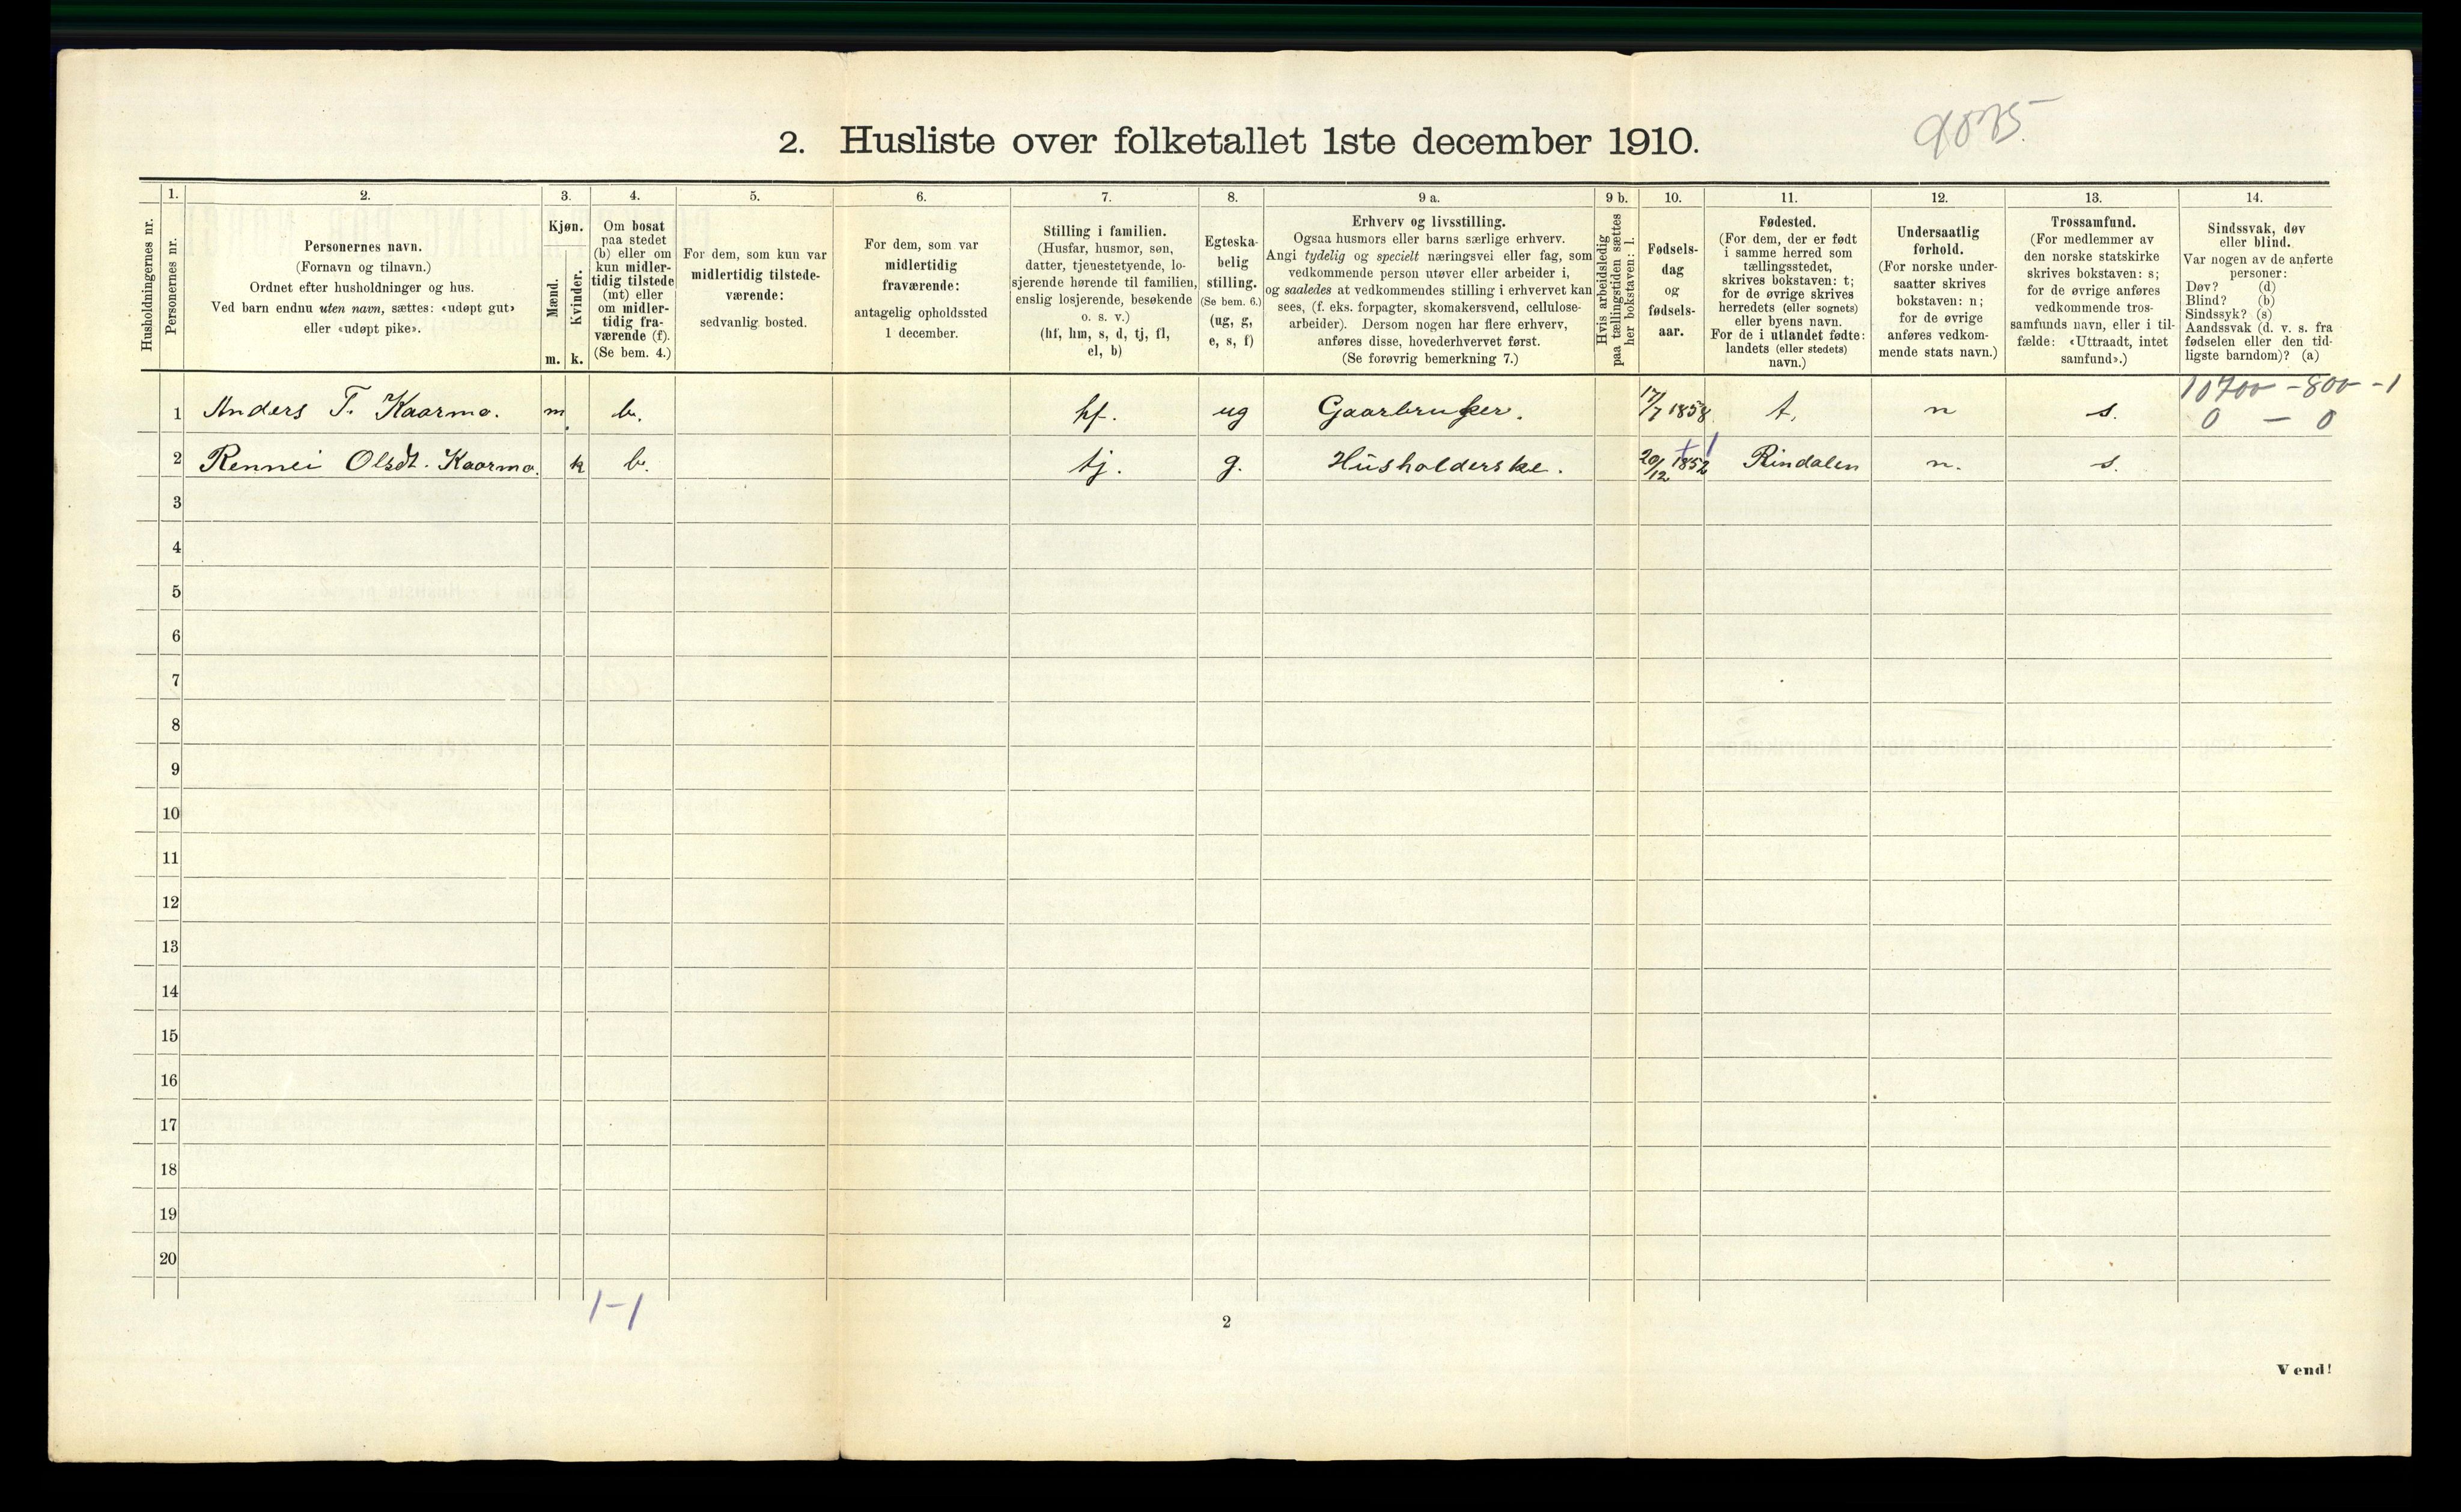 2. Husliste over folketallet 1ste december 1910.
1. 2. 3. 4. 5. 6. 7. 8. 9 a. 9 b. 10. 11. 12. 13. 14.
Husholdningernes nr.
Personernes nr.
Personernes navn.
(Fornavn og tilnavn.)
Ordnet efter husholdninger og hus.
Ved barn endnu uten navn, sættes: «udøpt gut»
eller «udøpt pike».
Kjøn.
Mænd.
Kvinder.
m. k.
Om bosat
paa stedet
(b) eller om
kun midler-
tidig tilstede
(mt) eller
om midler-
tidig fra-
værende (f).
(Se bem. 4.)
For dem, som kun var
midlertidig tilstede-
værende:
sedvanlig bosted.
For dem, som var
midlertidig
fraværende:
antagelig opholdssted
1 december.
Stilling i familien.
(Husfar, husmor, søn,
datter, tjenestetyende, lo-
sjerende hørende til familien,
enslig losjerende, besøkende
o. s. v.)
(hf, hm, s, d, tj, fl,
el, b)
Egteska-
belig
stilling.
(Se bem. 6.)
(ug, g,
e, s, f)
Erhverv og livsstilling.
Ogsaa husmors eller barns særlige erhverv.
Angi tydelig og specielt næringsvei eller fag, som
vedkommende person utøver eller arbeider i,
og saaledes at vedkommendes stilling i erhvervet kan
sees, (f. eks. forpagter, skomakersvend, cellulose-
arbeider). Dersom nogen har flere erhverv,
anføres disse, hovederhvervet først.
(Se forøvrig bemerkning 7.)
Hvis arbeidsledig
paa tællingstiden sættes
her bokstaven: l.
Fødsels-
dag
og
fødsels-
aar.
Fødested.
(For dem, der er født
i samme herred som
tællingsstedet,
skrives bokstaven: t;
for de øvrige skrives
herredets (eller sognets)
eller byens navn.
For de i utlandet fødte:
landets (eller stedets)
navn.)
Undersaatlig
forhold.
(For norske under-
saatter skrives
bokstaven: n;
for de øvrige
anføres vedkom-
mende stats navn.)
Trossamfund.
(For medlemmer av
den norske statskirke
skrives bokstaven: s;
for de øvrige anføres
vedkommende tros-
samfunds navn, eller i til-
fælde: «Uttraadt, intet
samfund».)
Sindssvak, døv
eller blind.
Var nogen av de anførte
personer:
Døv? (d)
Blind? (b)
Sindssyk? (s)
Aandssvak (d. v. s. fra
fødselen eller den tid-
ligste barndom)? (a)
10700 - 800 - 1
1 Anders T. Kaarmo. m b. hf. ug Gaarbruker. 17/7 1858 t, n s. 0 - 0
2 Rennei Olsdt. Kaarmo. k b. tj. g. Husholderske. 20/12 1852 Rindalen n. s.
3
4
5
6
7
8
9
10
11
12
13
14
15
16
17
18
19
20
1-1
2
Vend!